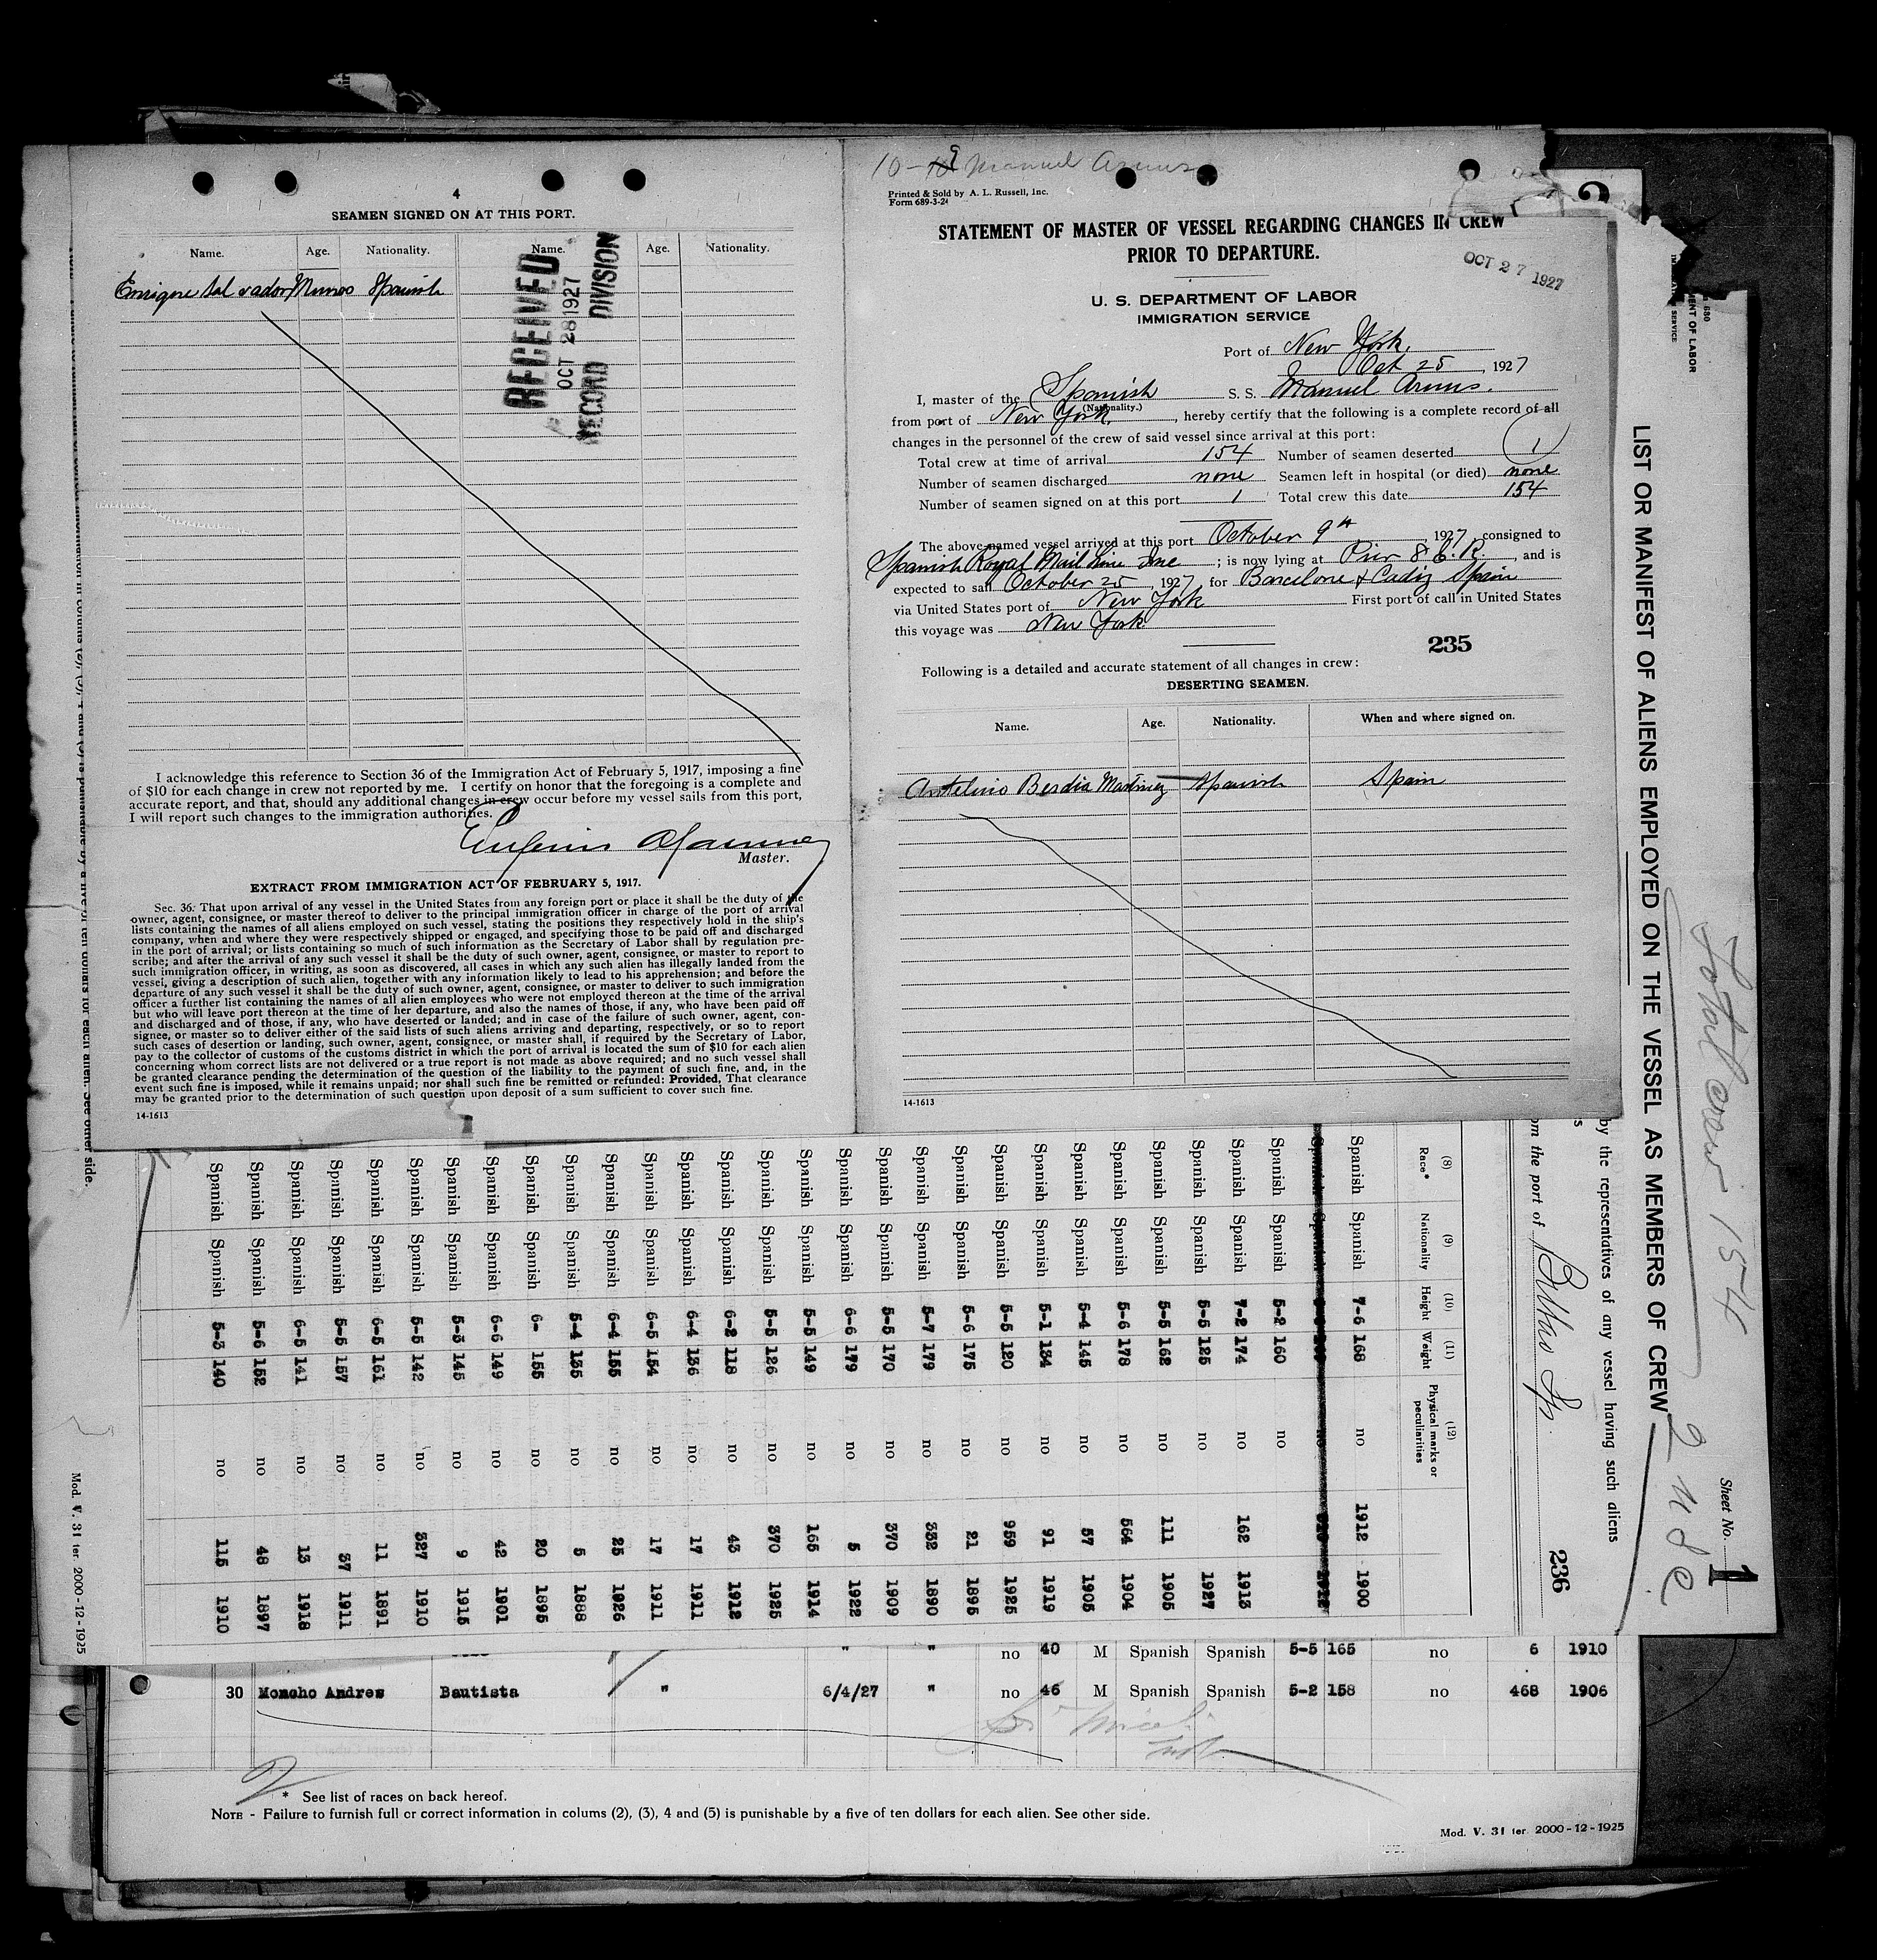 4
SEAMEN SIGNED ON AT THIS PORT.
Name. Age. Nationality. Name. Age. Nationality.
Enrique Salvador Munos Spanish
RECEIVED
OCT 28 1927
RECORD DIVISION
I acknowledge this reference to Section 36 of the Immigration Act of February 5, 1917, imposing a fine
of $10 for each change in crew not reported by me. I certify on honor that the foregoing is a complete and
accurate report, and that, should any additional changes in crew occur before my vessel sails from this port,
I will report such changes to the immigration authorities.
Master.
EXTRACT FROM IMMIGRATION ACT OF FEBRUARY 5, 1917.
Sec. 36. That upon arrival of any vessel in the United States from any foreign port or place it shall be the duty of the
owner, agent, consignee, or master thereof to deliver to the principal immigration officer in charge of the port of arrival
lists containing the names of all aliens employed on such vessel, stating the positions they respectively hold in the ship's
company, when and where they were respectively shipped or engaged, and specifying those to be paid off and discharged
in the port of arrival; or lists containing so much of such information as the Secretary of Labor shall by regulation pre-
scribe; and after the arrival of any such vessel it shall be the duty of such owner, agent, consignee, or master to report to
such immigration officer, in writing, as soon as discovered, all cases in which any such alien has illegally landed from the
vessel, giving a description of such alien, together with any information likely to lead to his apprehension; and before the
departure of any such vessel it shall be the duty of such owner, agent, consignee, or master to deliver to such immigration
officer a further list containing the names of all alien employees who were not employed thereon at the time of the arrival
but who will leave port thereon at the time of her departure, and also the names of those, if any, who have been paid off
and discharged and of those, if any, who have deserted or landed; and in case of the failure of such owner, agent, con-
signee, or master so to deliver either of the said lists of such aliens arriving and departing, respectively, or so to report
such cases of desertion or landing, such owner, agent, consignee, or master shall, if required by the Secretary of Labor,
pay to the collector of customs of the customs district in which the port of arrival is located the sum of $10 for each alien
concerning whom correct lists are not delivered or a true report is not made as above required; and no such vessel shall
be granted clearance pending the determination of the question of the liability to the payment of such fine, and, in the
event such fine is imposed, while it remains unpaid; nor shall such fine be remitted or refunded: Provided, That clearance
may be granted prior to the determination of such question upon deposit of a sum sufficient to cover such fine.
14-1613
Manuel Arnus
Printed & Sold by A. L. Russell, Inc.
Form 689-3-24
STATEMENT OF MASTER OF VESSEL REGARDING CHANGES IN CREW
PRIOR TO DEPARTURE.
OCT 27 1927
U. S. DEPARTMENT OF LABOR
IMMIGRATION SERVICE
Port of New York.
Oct 25, 1927
I, master of the Spanish S. S. Manuel Arnus.
(Nationality.)
from port of New York, hereby certify that the following is a complete record of all
changes in the personnel of the crew of said vessel since arrival at this port:
Total crew at time of arrival 154 Number of seamen deserted 1
Number of seamen discharged none Seamen left in hospital (or died) none
Number of seamen signed on at this port 1 Total crew this date 154
The above-named vessel arrived at this port October 9th, 1927, consigned to
Spanish Royal Mail Line Inc; is now lying at Pier 8 E. R., and is
expected to sail October 25, 1927, for Barcelone & Cadiz Spain
via United States port of New York First port of call in United States
this voyage was New York
235
Following is a detailed and accurate statement of all changes in crew:
DESERTING SEAMEN.
Name. Age. Nationality. When and where signed on.
Antelino Berdia Martinez Spanish Spain
14-1613
LIST OR MANIFEST OF ALIENS EMPLOYED ON THE VESSEL AS MEMBERS OF CREW
Total crew 154
2 USC
Sheet No. 1
by the representatives of any vessel having such aliens
om the port of Bilbao Sp.
236
(8) Race* (9) Nationality (10) Height (11) Weight (12) Physical marks or peculiarities
Spanish Spanish 7-6 168 no 1912 1900
Spanish Spanish 5-2 160 no
Spanish Spanish 7-2 174 no 162 1913
Spanish Spanish 5-5 125 1927
Spanish Spanish 5-5 162 no 111 1905
Spanish Spanish 5-6 178 no 564 1904
Spanish Spanish 5-4 145 no 57 1905
Spanish Spanish 5-1 134 no 91 1919
Spanish Spanish 5-5 120 no 959 1925
Spanish Spanish 5-6 175 no 21 1895
Spanish Spanish 5-7 179 no 332 1890
Spanish Spanish 5-5 170 no 370 1909
Spanish Spanish 6-6 179 no 5 1922
Spanish Spanish 5-5 149 no 165 1914
Spanish Spanish 5-5 126 no 370 1925
Spanish Spanish 6-2 118 no 43 1912
Spanish Spanish 6-4 136 no 17 1911
Spanish Spanish 6-5 154 no 17 1911
Spanish Spanish 6-4 155 no 25 1926
Spanish Spanish 5-4 135 no 5 1888
Spanish Spanish 6- 155 no 20 1895
Spanish Spanish 6-6 149 no 42 1901
Spanish Spanish 5-3 145 no 9 1915
Spanish Spanish 5-5 142 no 327 1910
Spanish Spanish 6-5 161 no 11 1891
Spanish Spanish 5-5 157 no 37 1911
Spanish Spanish 6-5 141 no 13 1918
Spanish Spanish 5-6 152 no 48 1897
Spanish Spanish 5-3 140 no 115 1910
Mod. V. 31 ter. 2000-12-1925
" " no 40 M Spanish Spanish 5-5 165 no 6 1910
30 Moncho Andres Bautista " 6/4/27 " no 46 M Spanish Spanish 5-2 158 no 468 1906
* See list of races on back hereof.
NOTE - Failure to furnish full or correct information in colums (2), (3), 4 and (5) is punishable by a five of ten dollars for each alien. See other side.
Mod. V. 31 ter. 2000-12-1925